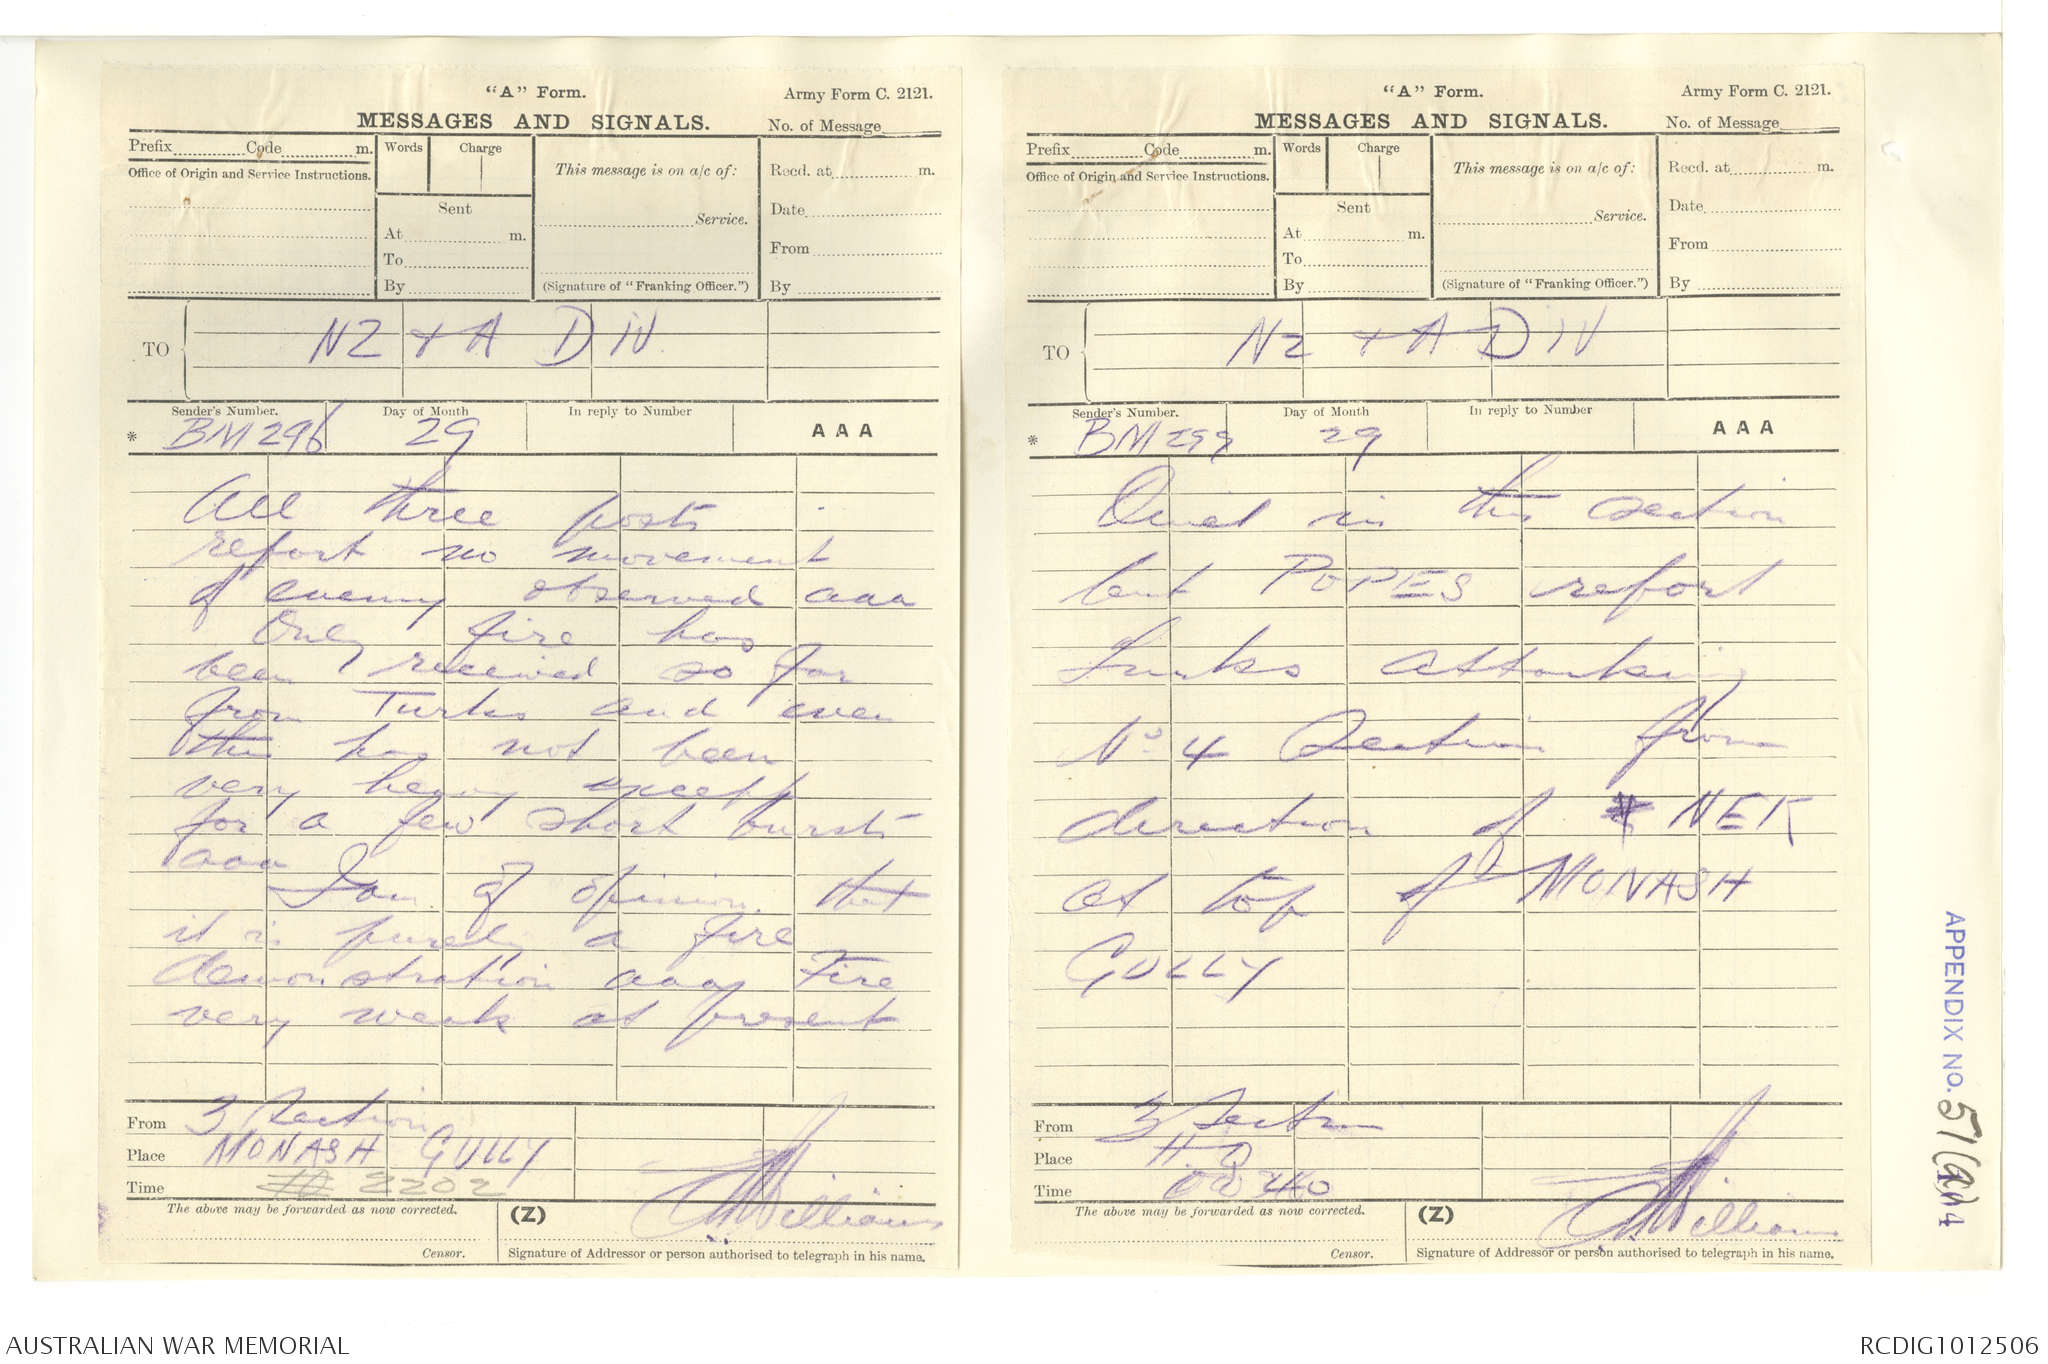 "A" Form.
Army Form C. 2121.
MESSAGES AND SIGNALS.
No. of Message
Prefix Code m.
Words Charge
This message is on a/c of:
Recd. at m.
Office of Origin and Service Instructions.
Sent
Service.
Date
At m.
From
To
By
(Signature of "Franking Officer.")
By
TO
NZ + A DIV
Sender's Number.
Day of Month
In reply to Number
AAA
* BM 296
29
All three posts
report no movement
of enemy observed aaa
Only fire has
been received so far
from Turks and even
this has not been
very heavy except
for a few short bursts
aaa
I am of opinion that
it is purely a fire
demonstration aaa Fire
very weak at present
From 3 Section
Place MONASH GULLY
Time 2202
The above may be forwarded as now corrected.
(Z)
Williams
Censor.
Signature of Addressor or person authorised to telegraph in his name.
"A" Form.
Army Form C. 2121.
MESSAGES AND SIGNALS.
No. of Message
Prefix Code m.
Words Charge
This message is on a/c of:
Recd. at m.
Office of Origin and Service Instructions.
Sent
Service.
Date
At m.
From
To
By
(Signature of "Franking Officer.")
By
TO
NZ + A DIV
Sender's Number.
Day of Month
In reply to Number
AAA
* BM 299
29
Quiet in this section
but POPES report
Turks attacking
No 4 Section from
direction of NEK
at top of MONASH
GULLY
From 3 Section
Place HQ
Time
The above may be forwarded as now corrected.
(Z)
Williams
Censor.
Signature of Addressor or person authorised to telegraph in his name.
APPENDIX NO. 51(a)14
AUSTRALIAN WAR MEMORIAL
RCDIG1012506